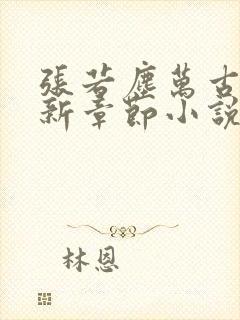 張若塵萬古
新章節小說
林恩